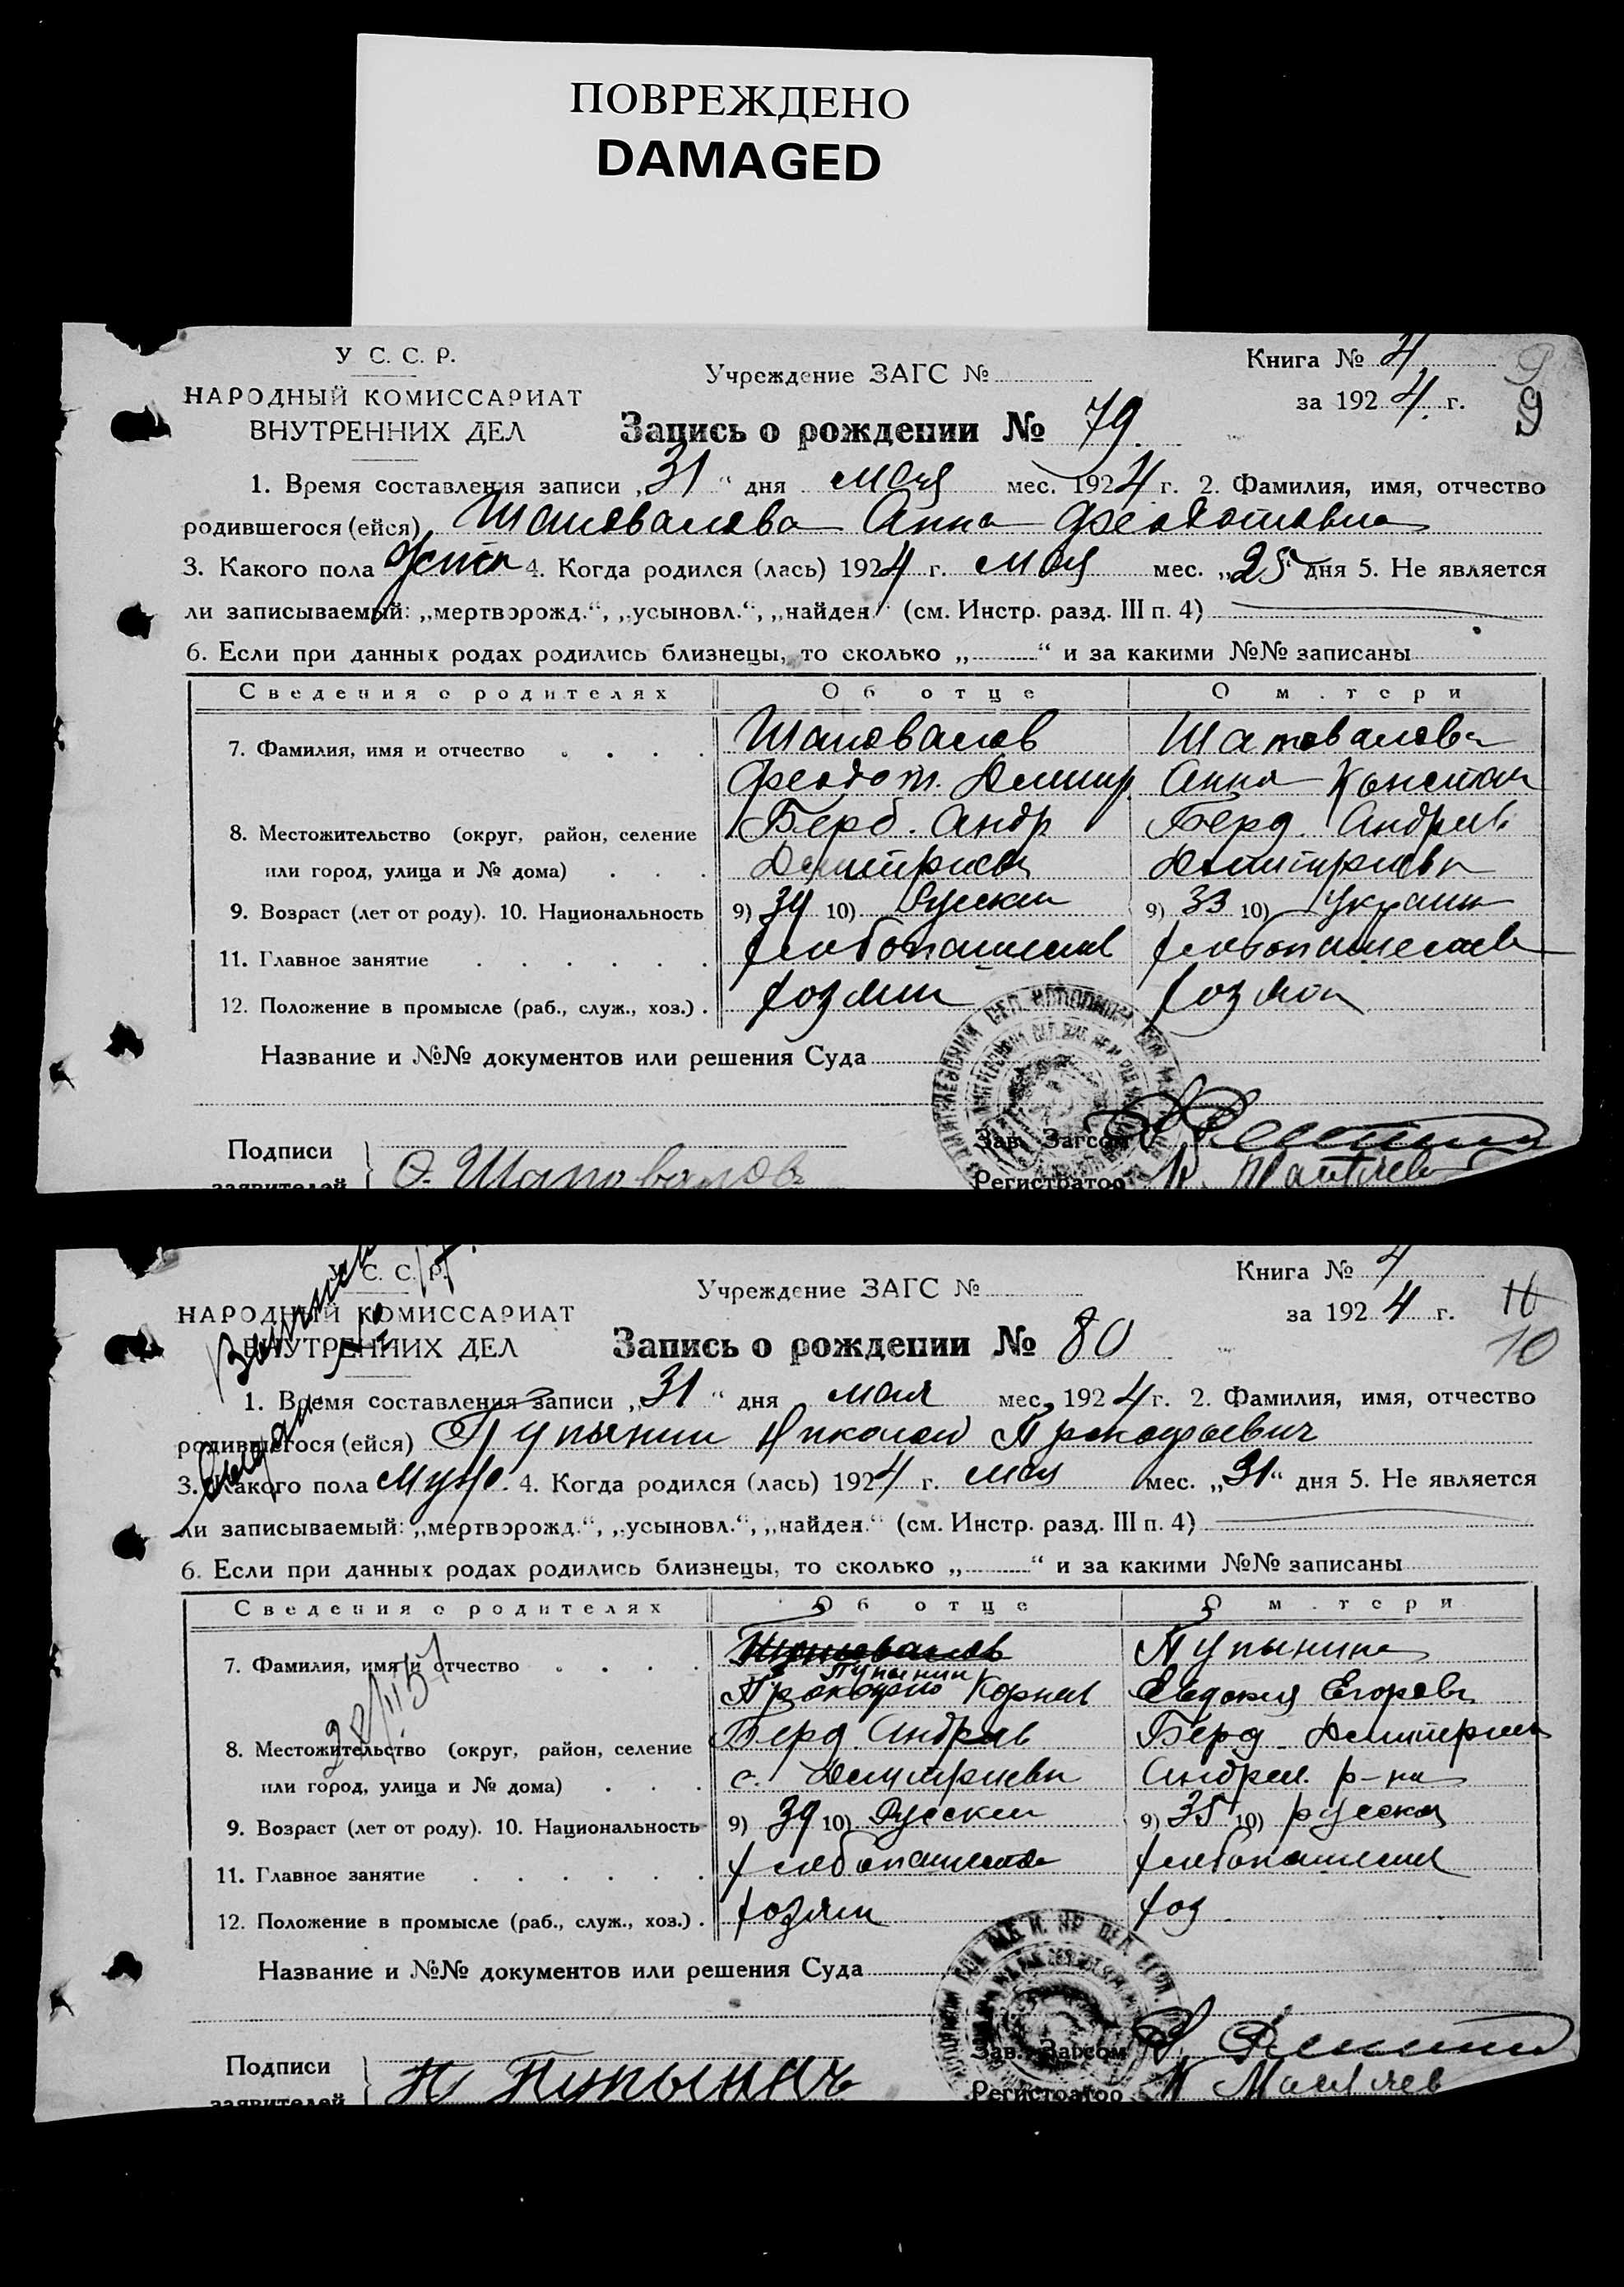 ПОВРЕЖДЕНО
DAMAGED
У С. С. Р.
НАРОДНЫЙ КОМИССАРИАТ
ВНУТРЕННИХ ДЕЛ
Учреждение ЗАГС №
Книга № 4
за 1924. г.
9
9
Запись о рождении № 79.
1. Время составления записи „31“ дня мая мес. 1924 г. 2. Фамилия, имя, отчество
родившегося (ейся) Шаповалова Анна Феодотовна
3. Какого пола 4. Когда родился (лась) 1924 г. мая мес. „25“ дня 5. Не является
ли записываемый: „мертворожд.“, „усыновл.“, „найден“ (см. Инстр. разд. III п. 4)
6. Если при данных родах родились близнецы, то сколько „ “ и за какими №№ записаны
Сведения о родителях Об отце О м.тери
7. Фамилия, имя и отчество . . . . Шаповалов Шаповалова
Феодот. Димитр. Анна Констан
8. Местожительство (округ, район, селение Берд. Андр Берд. Андреев
или город, улица и № дома) . . . Димитриевка Димитриевка
9. Возраст (лет от роду). 10. Национальность 9) 39 10) Русский 9) 33 10) Украин
11. Главное занятие . . . . . . хлебопашество хлебопашество
12. Положение в промысле (раб., служ., хоз.) . хозяин хозяй
Название и №№ документов или решения Суда
Подписи
заявителей
Ф. Шаповалов
Зав. Загсом
Регистратор
У С. С. Р.
НАРОДНЫЙ КОМИССАРИАТ
ВНУТРЕННИХ ДЕЛ
Учреждение ЗАГС №
Книга № 4
за 1924 г.
10
Запись о рождении № 80
1. Время составления записи „31“ дня мая мес. 1924 г. 2. Фамилия, имя, отчество
родившегося (ейся) Пупынин Николай Прокофьевич
3. Какого пола Муж. 4. Когда родился (лась) 1924 г. мая мес. „31“ дня 5. Не является
ли записываемый: „мертворожд.“, „усыновл.“, „найден.“ (см. Инстр. разд. III п. 4)
6. Если при данных родах родились близнецы, то сколько „ “ и за какими №№ записаны
Сведения о родителях Об отце О м.тери
7. Фамилия, имя и отчество . . . . Шаповалов Пупынина
Пупынин
Прокофий Корнеев Евдокия Егоровн
8. Местожительство (округ, район, селение Берд. Андреев Берд. Димитриев
или город, улица и № дома) . . . с. Димитриевка Андреев. р-на
9. Возраст (лет от роду). 10. Национальность 9) 39 10) Русский 9) 35 10) русская
11. Главное занятие . . . . . . хлебопашество хлебопашество
12. Положение в промысле (раб., служ., хоз.) . хозяин хоз
Название и №№ документов или решения Суда
Подписи
заявителей
П Пупынин
Зав. Загсом
Регистратор